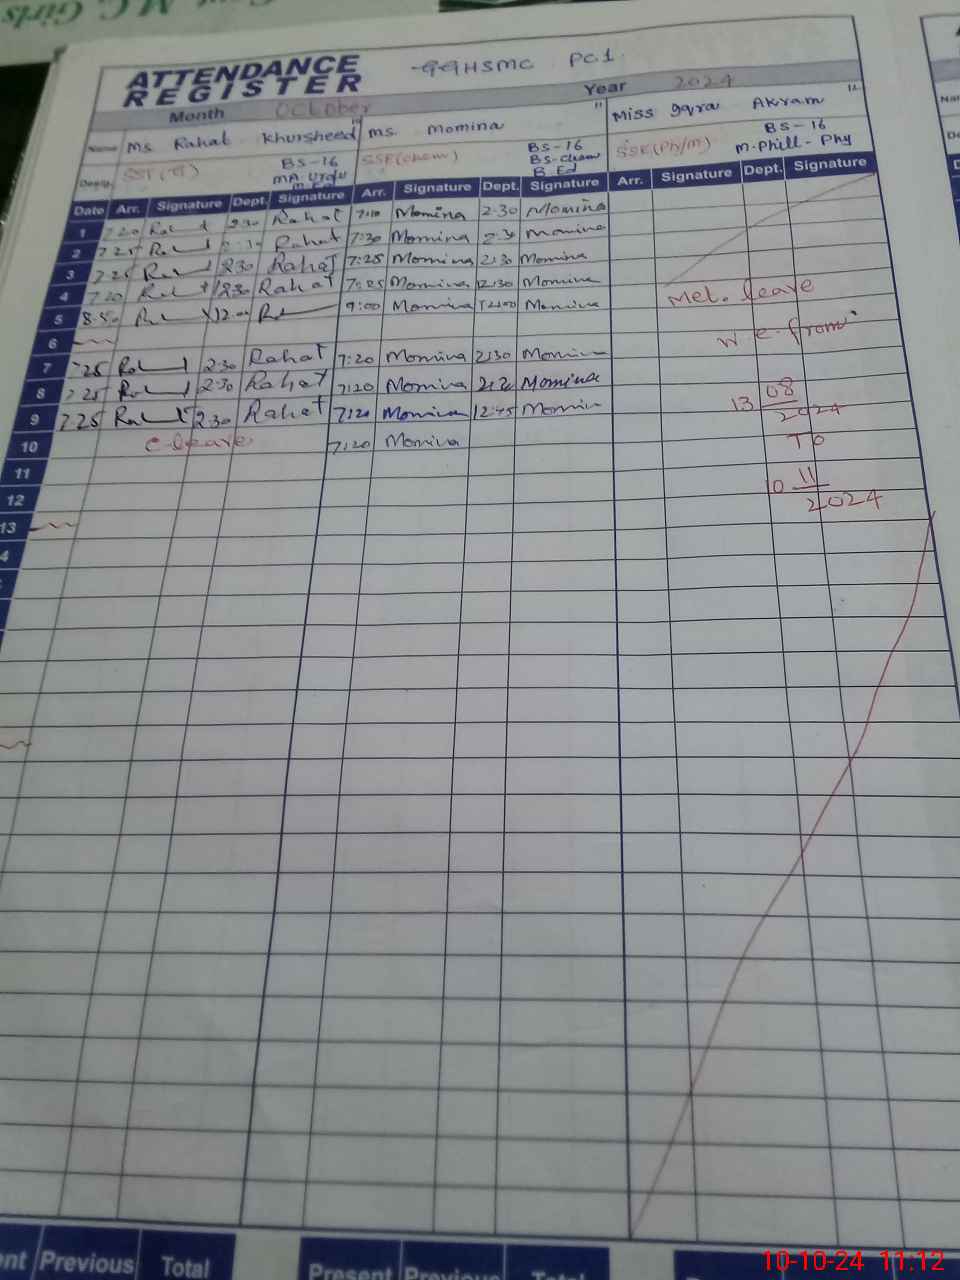 M.C. Girls
ATTENDANCE
REGISTER
GGHSMC PG1
Month October Year 2024
Name Ms Rahat Khursheed Ms. Momina Miss Iqra Akram
Desig. SST(IT) BS-16 SSE(chem) BS-16 SSE(Phy/m) BS-16
MA-Urdu BS-Chem M.Phill-Phy
M.Ed B.Ed
Date Arr. Signature Dept. Signature Arr. Signature Dept. Signature Arr. Signature Dept. Signature
1 7.20 2:30 Rahat 7:10 Momina 2:30 Momina
2 7.25 Rahat 7:30 Momina 2:30 Momina
3 7.25 2:30 Rahat 7:25 Momina 2:30 Momina
4 7.20 12:30 Rahat 7:25 Momina 12:30 Momina
5 8:50 12:00 9:00 Momina 12:00 Momina
Met. leave
6
w.e.from
7 7.25 2:30 Rahat 7:20 Momina 2:30 Momina
8 7.25 2:30 Rahat 7:20 Momina Momina
9 7.25 2:30 Rahat 7:20 Momina 12:45 Momina
13 08
2024
10 c-leave 7:20 Momina
To
11
12
10 11
2024
13
4
ent Previous Total Present Previous Total
10-10-24 11:12